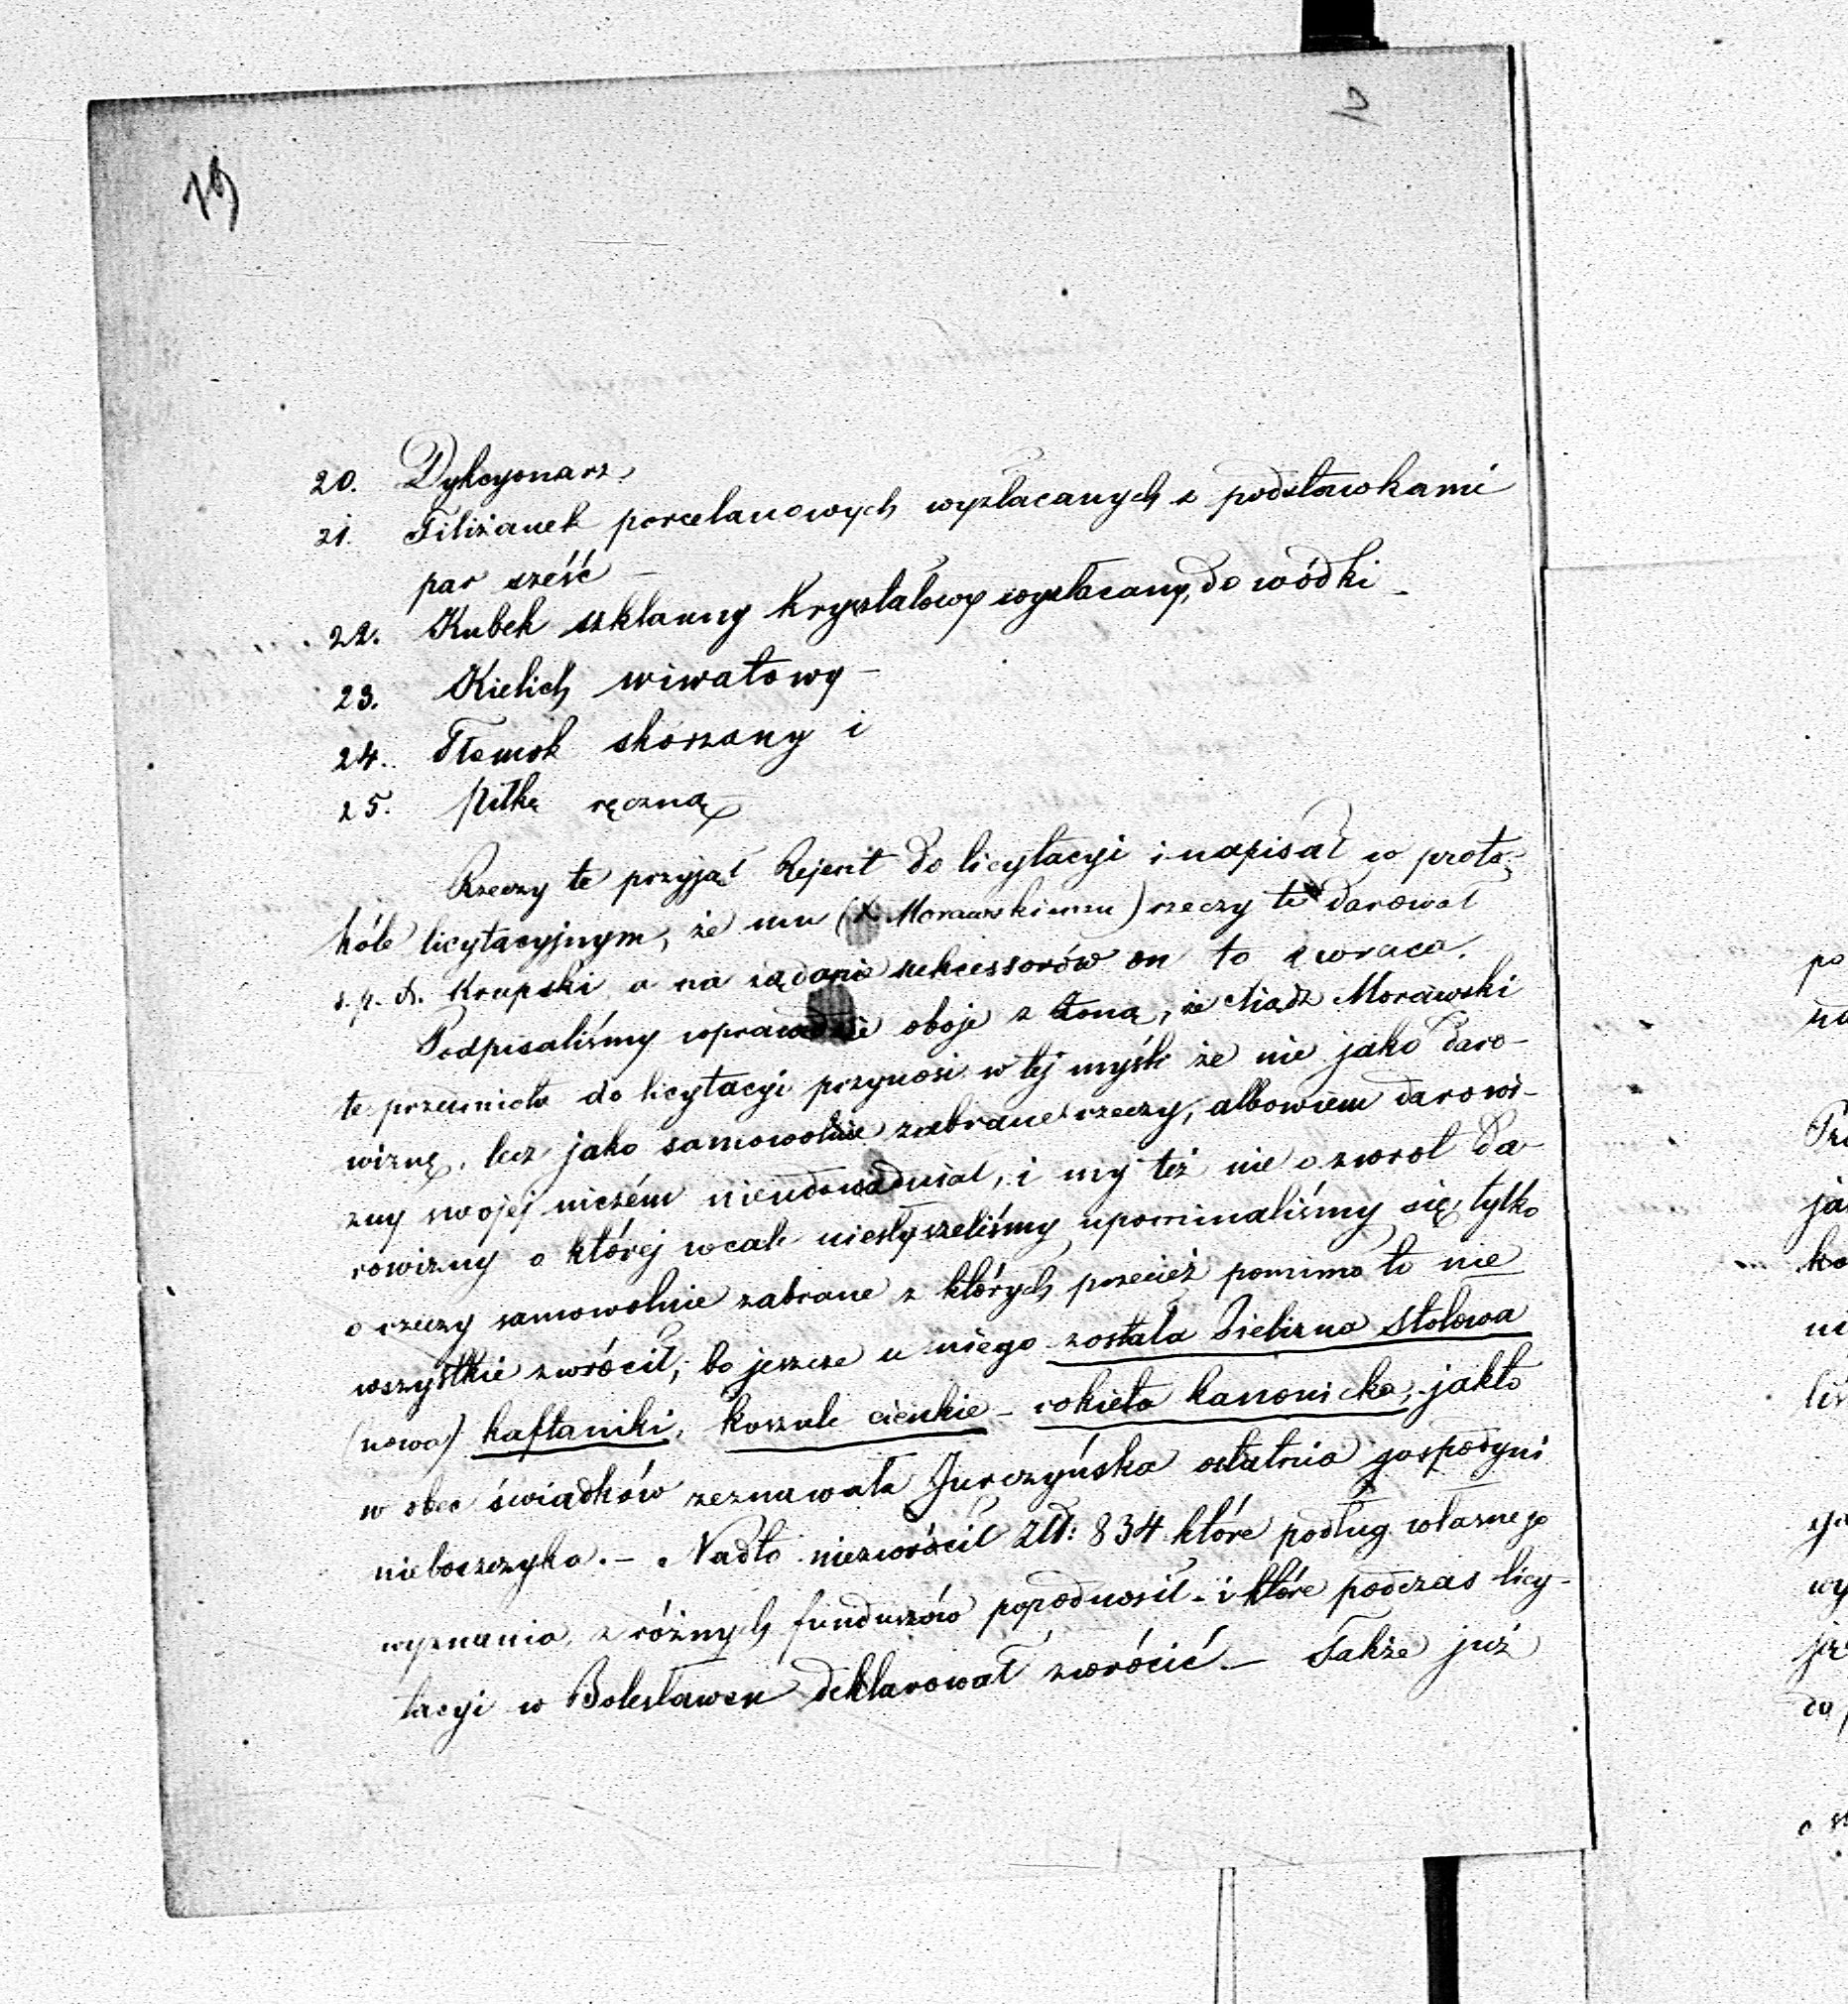 19
20. Dykcyonarz
21. Filiżanek porcelanowych wyzłacanych z podstawkami
par sześć –
22. Kubek szklanny kryształowy wyzłacany, do wódki –
23. Kielich wiwatowy –
24. Tłomok skórzany i
25. Piłkę ręczną
Rzeczy te przyjął Rejent do licytacyi i napisał w proto-
kóle licytacyjnym, że mu (X Morawskiemu) rzeczy te darował
ś. p. X. Krupski a na żądanie sukcessorów on to zwraca.
Podpisaliśmy wprawdzie oboje z żoną, że Xiądz Morawski
te przedmiota do licytacyi przynosi w tej myśli że nie jako daro-
wiznę, lecz jako samowolnie zabrane rzeczy, albowiem darowi-
zny swojej niczém nieudowadniał, i my też nie o zwrot da-
rowizny o której wcale niesłyszeliśmy upominaliśmy się, tylko
o rzeczy samowolnie zabrane z których przecież pomimo to nie
wszystkie zwrócił, bo jeszcze u niego została bielizna stołowa
(nowa) kaftaniki, koszule cienkie – rokieta kanonicka, jak to
w obec świadków zeznawała Jurczyńska ostatnia gospodyni
nieboszczyka. – Nadto niezwrócił Złt: 834 które podług własnego
wyznania, z różnych funduszów popodnosił – i które podczas licy-
tacyi w Bolesławcu deklarował zwrócić. – Także już
po
ja